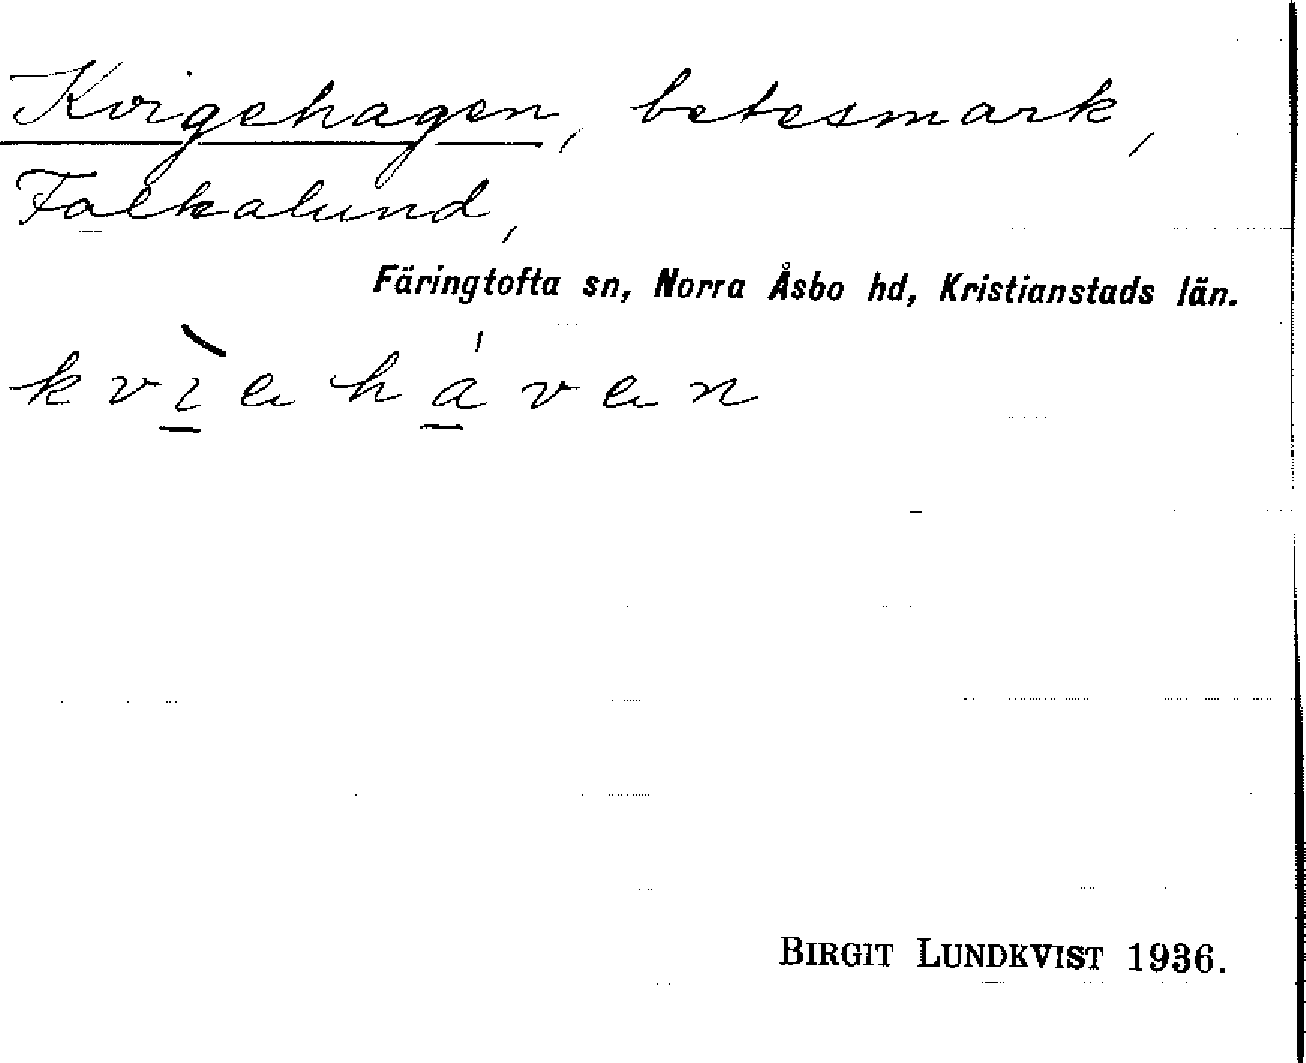 Kvigehagen, betesmark,
Falkalund,
Färingtofta sn, Norra Åsbo hd, Kristianstads län.
kvìeháven
BIRGIT LUNDKVIST 1936.